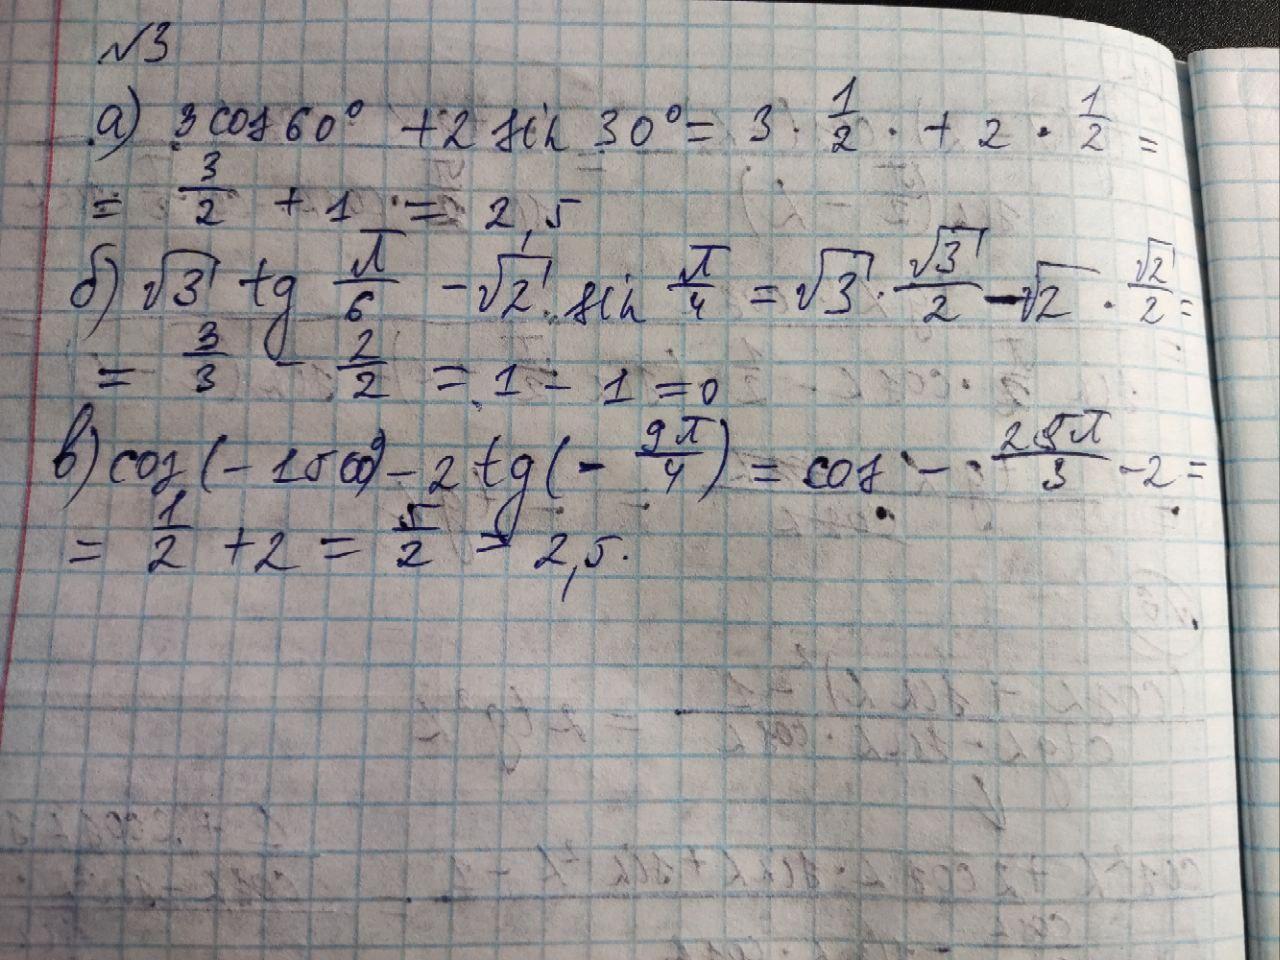 √3
а) 3 cos 60° + 2 sin 30° = 3 · 1/2 · + 2 · 1/2 =
= 3/2 + 1 = 2,5
б) √3 tg π/6 - √2 · sin π/4 = √3 · √3/2 - √2 · √2/2 =
= 3/3 - 2/2 = 1 - 1 = 0
в) cos (- 1500°) - 2 tg (- 9π/4) = cos - 25π/3 - 2 =
= 1/2 + 2 = 5/2 = 2,5.